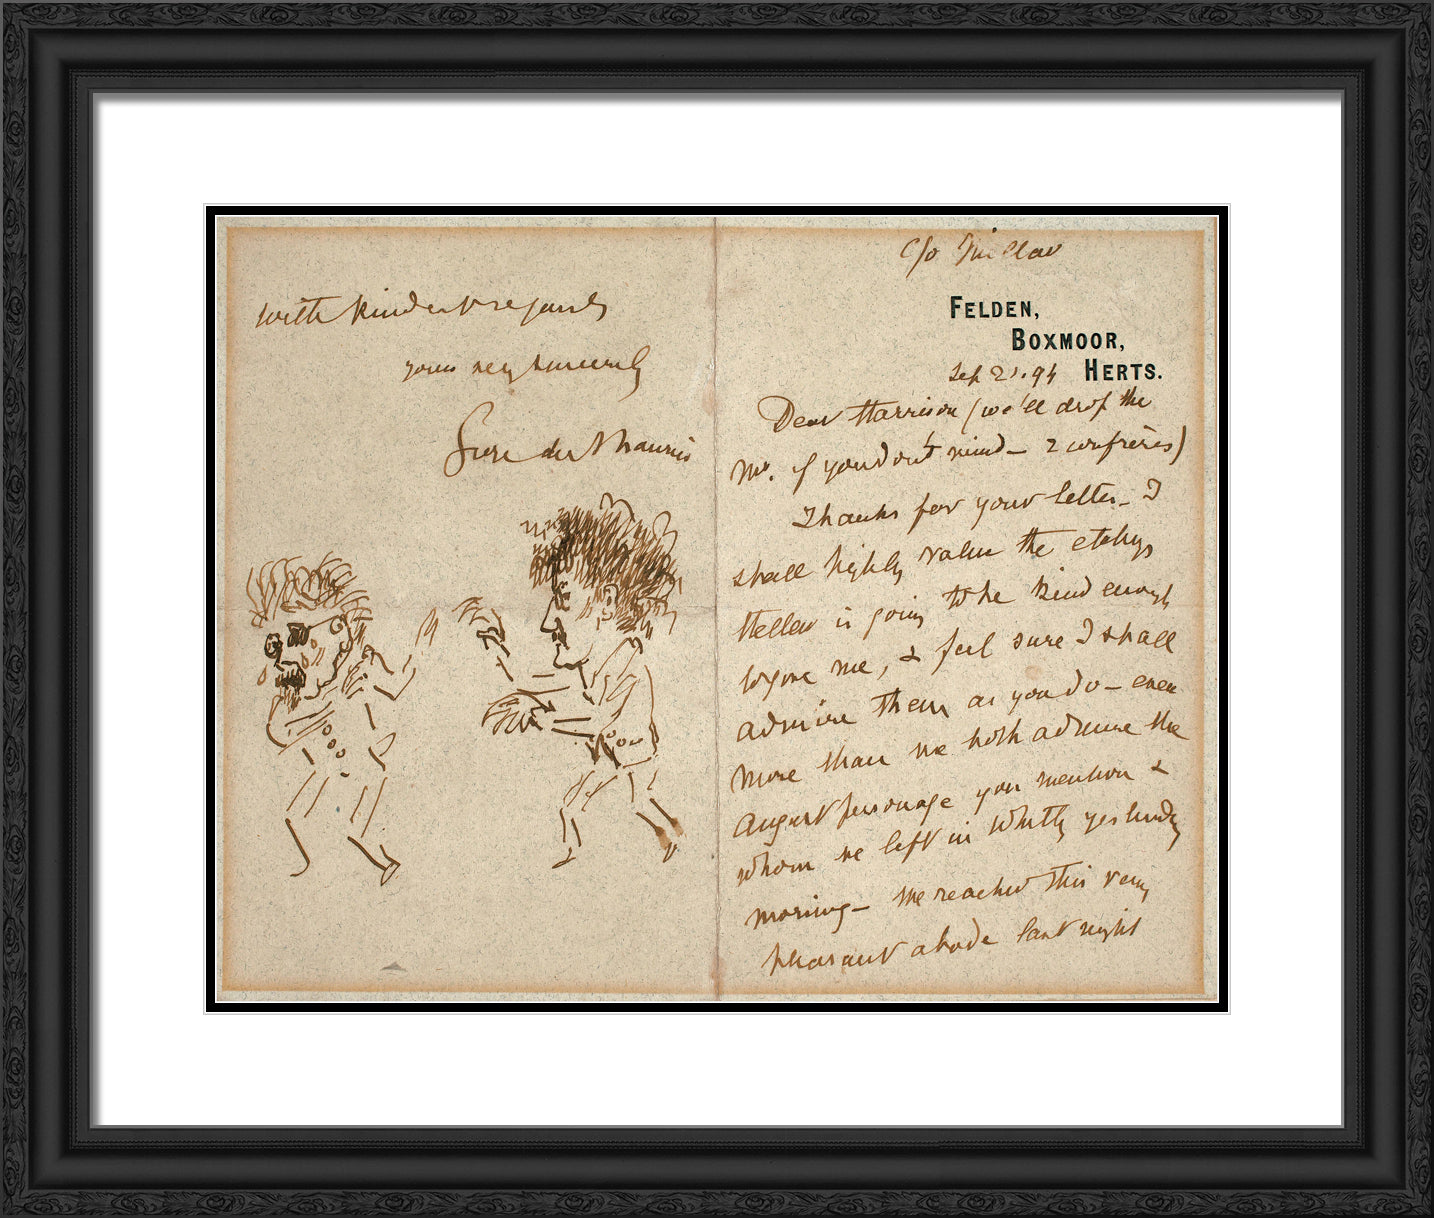 c/o
FELDEN,
BOXMOOR,
Sep 21. 94 HERTS.
Dear Harrison (we'll drop the
Mr. if you don't mind - 2 confrères)
Thanks for your letter - I
shall highly value the etchings
is going to be kind enough
to give me, & feel sure I shall
admire them as you do - even
more than we both admire the
august personage you mention &
whom we left in Whitby yesterday
morning - We reached this very
pleasant abode last night
With kindest regards
yours very sincerely
George du Maurier